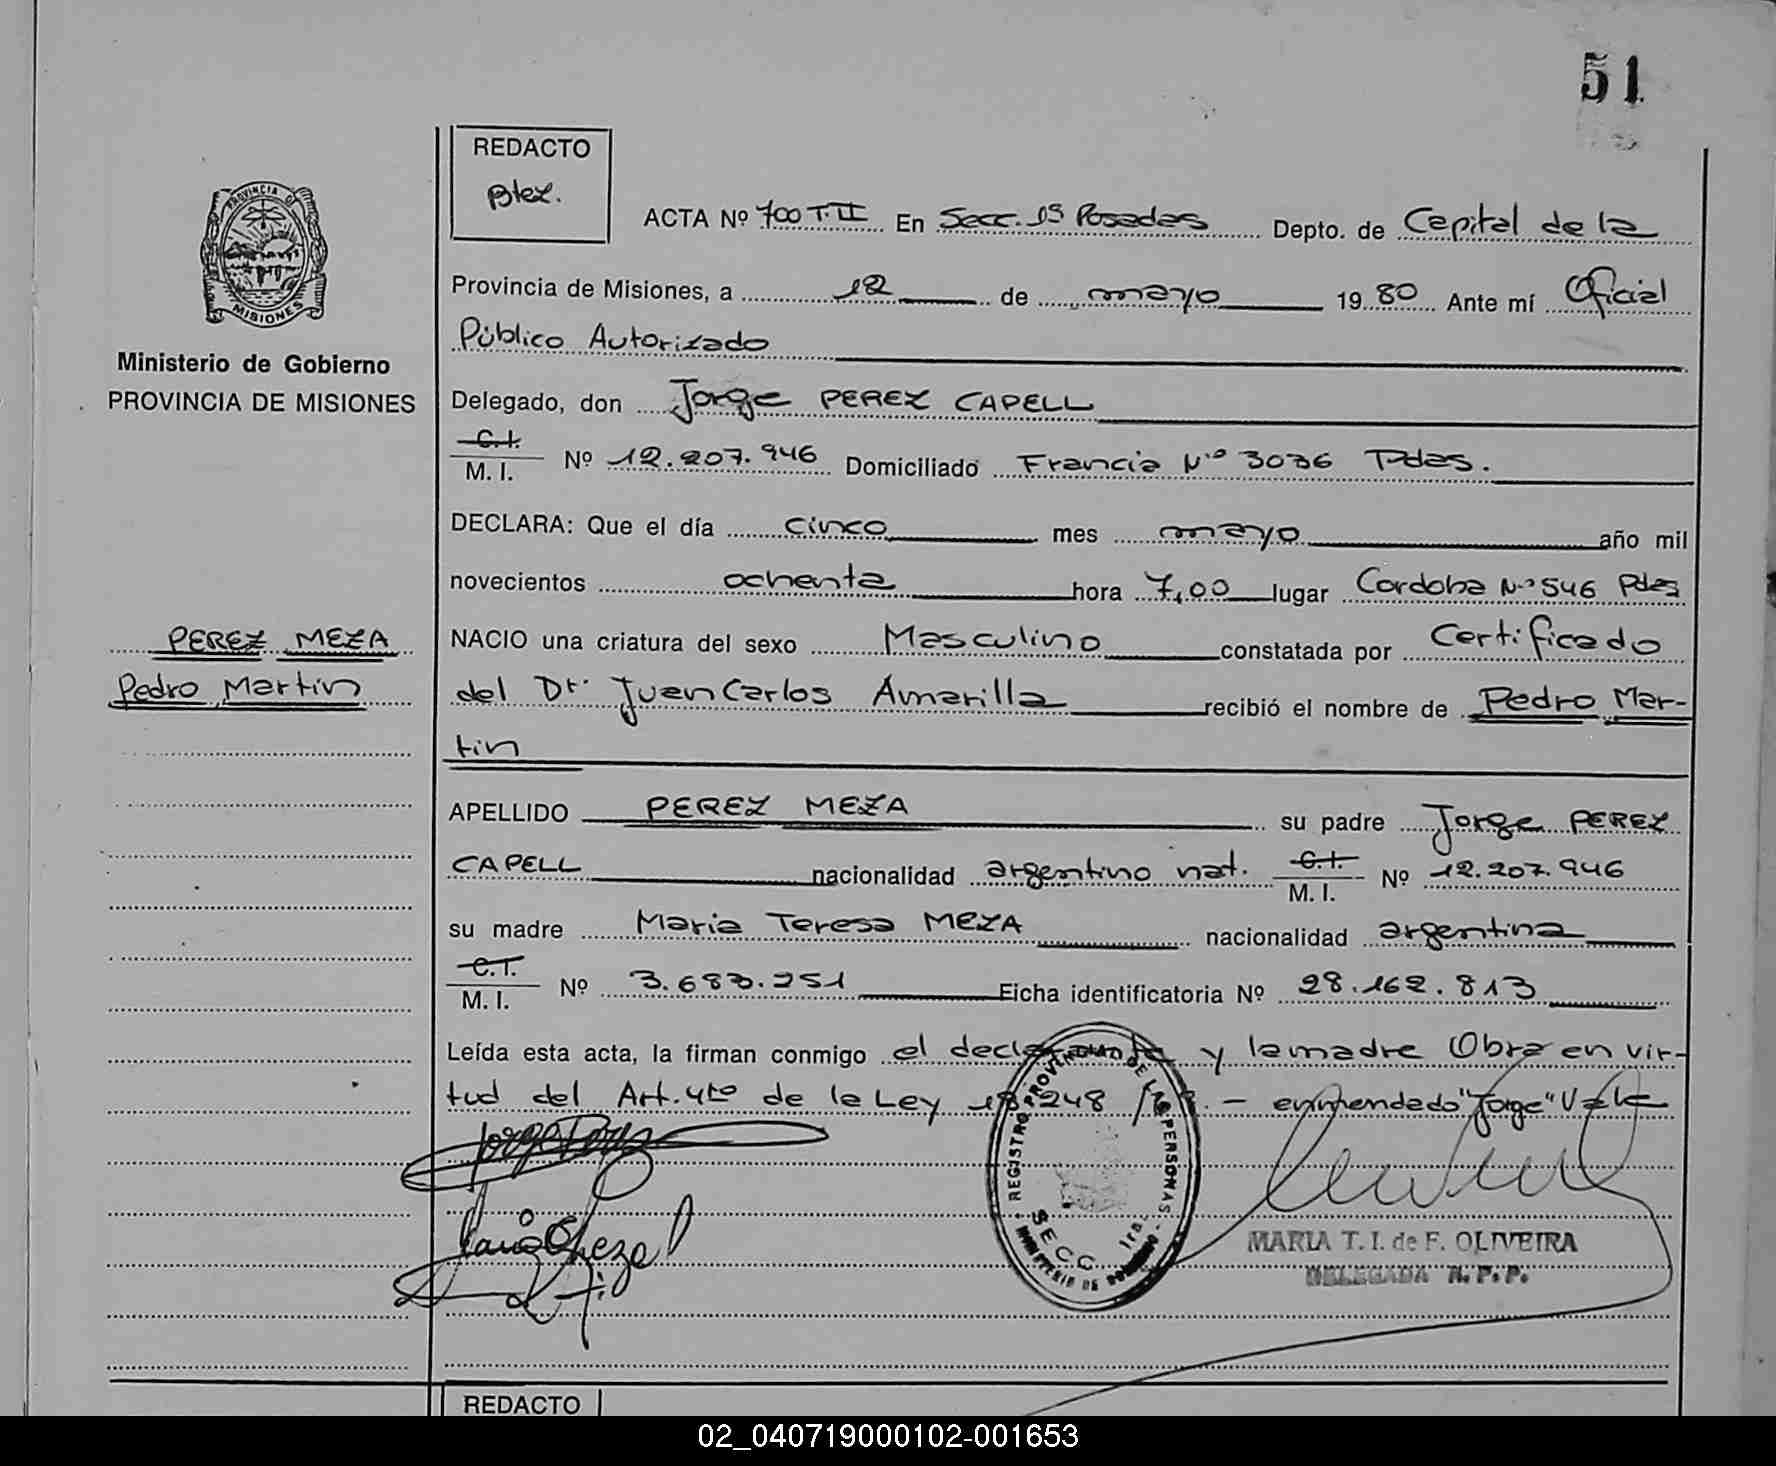 51
REDACTO
Btez.
PROVINCIA DE
MISIONES
Ministerio de Gobierno
PROVINCIA DE MISIONES
PEREZ MEZA
Pedro Martin
ACTA Nº 700 T.II En Secc. 1ª Posadas Depto. de Capital de la
Provincia de Misiones, a 12 de mayo 1980 Ante mí Oficial
Público Autorizado
Delegado, don Jorge PEREZ CAPELL
C.I. M. I. Nº 12.207.946 Domiciliado Francia Nº 3036 Pdas.
DECLARA: Que el día cinco mes mayo año mil
novecientos ochenta hora 7,00 lugar Cordoba Nº 546 Pdas
NACIO una criatura del sexo Masculino constatada por Certificado
del Dr. Juan Carlos Amarilla recibió el nombre de Pedro Mar-
tin
APELLIDO PEREZ MEZA su padre Jorge PEREZ
CAPELL nacionalidad argentino nat. C.I. M. I. Nº 12.207.946
su madre Maria Teresa MEZA nacionalidad argentina
C.I. M. I. Nº 3.683.251 Ficha identificatoria Nº 28.162.813
Leída esta acta, la firman conmigo el declarante y la madre Obra en vir-
tud del Art. 4to de la Ley 18.248 - enmendado "Jorge" Vale
REGISTRO PROVINCIAL DE LAS PERSONAS
SECC. 1ra.
MINISTERIO DE GOBIERNO
MARIA T. I. de F. OLIVEIRA
DELEGADA R.P.P.
REDACTO
02_040719000102-001653